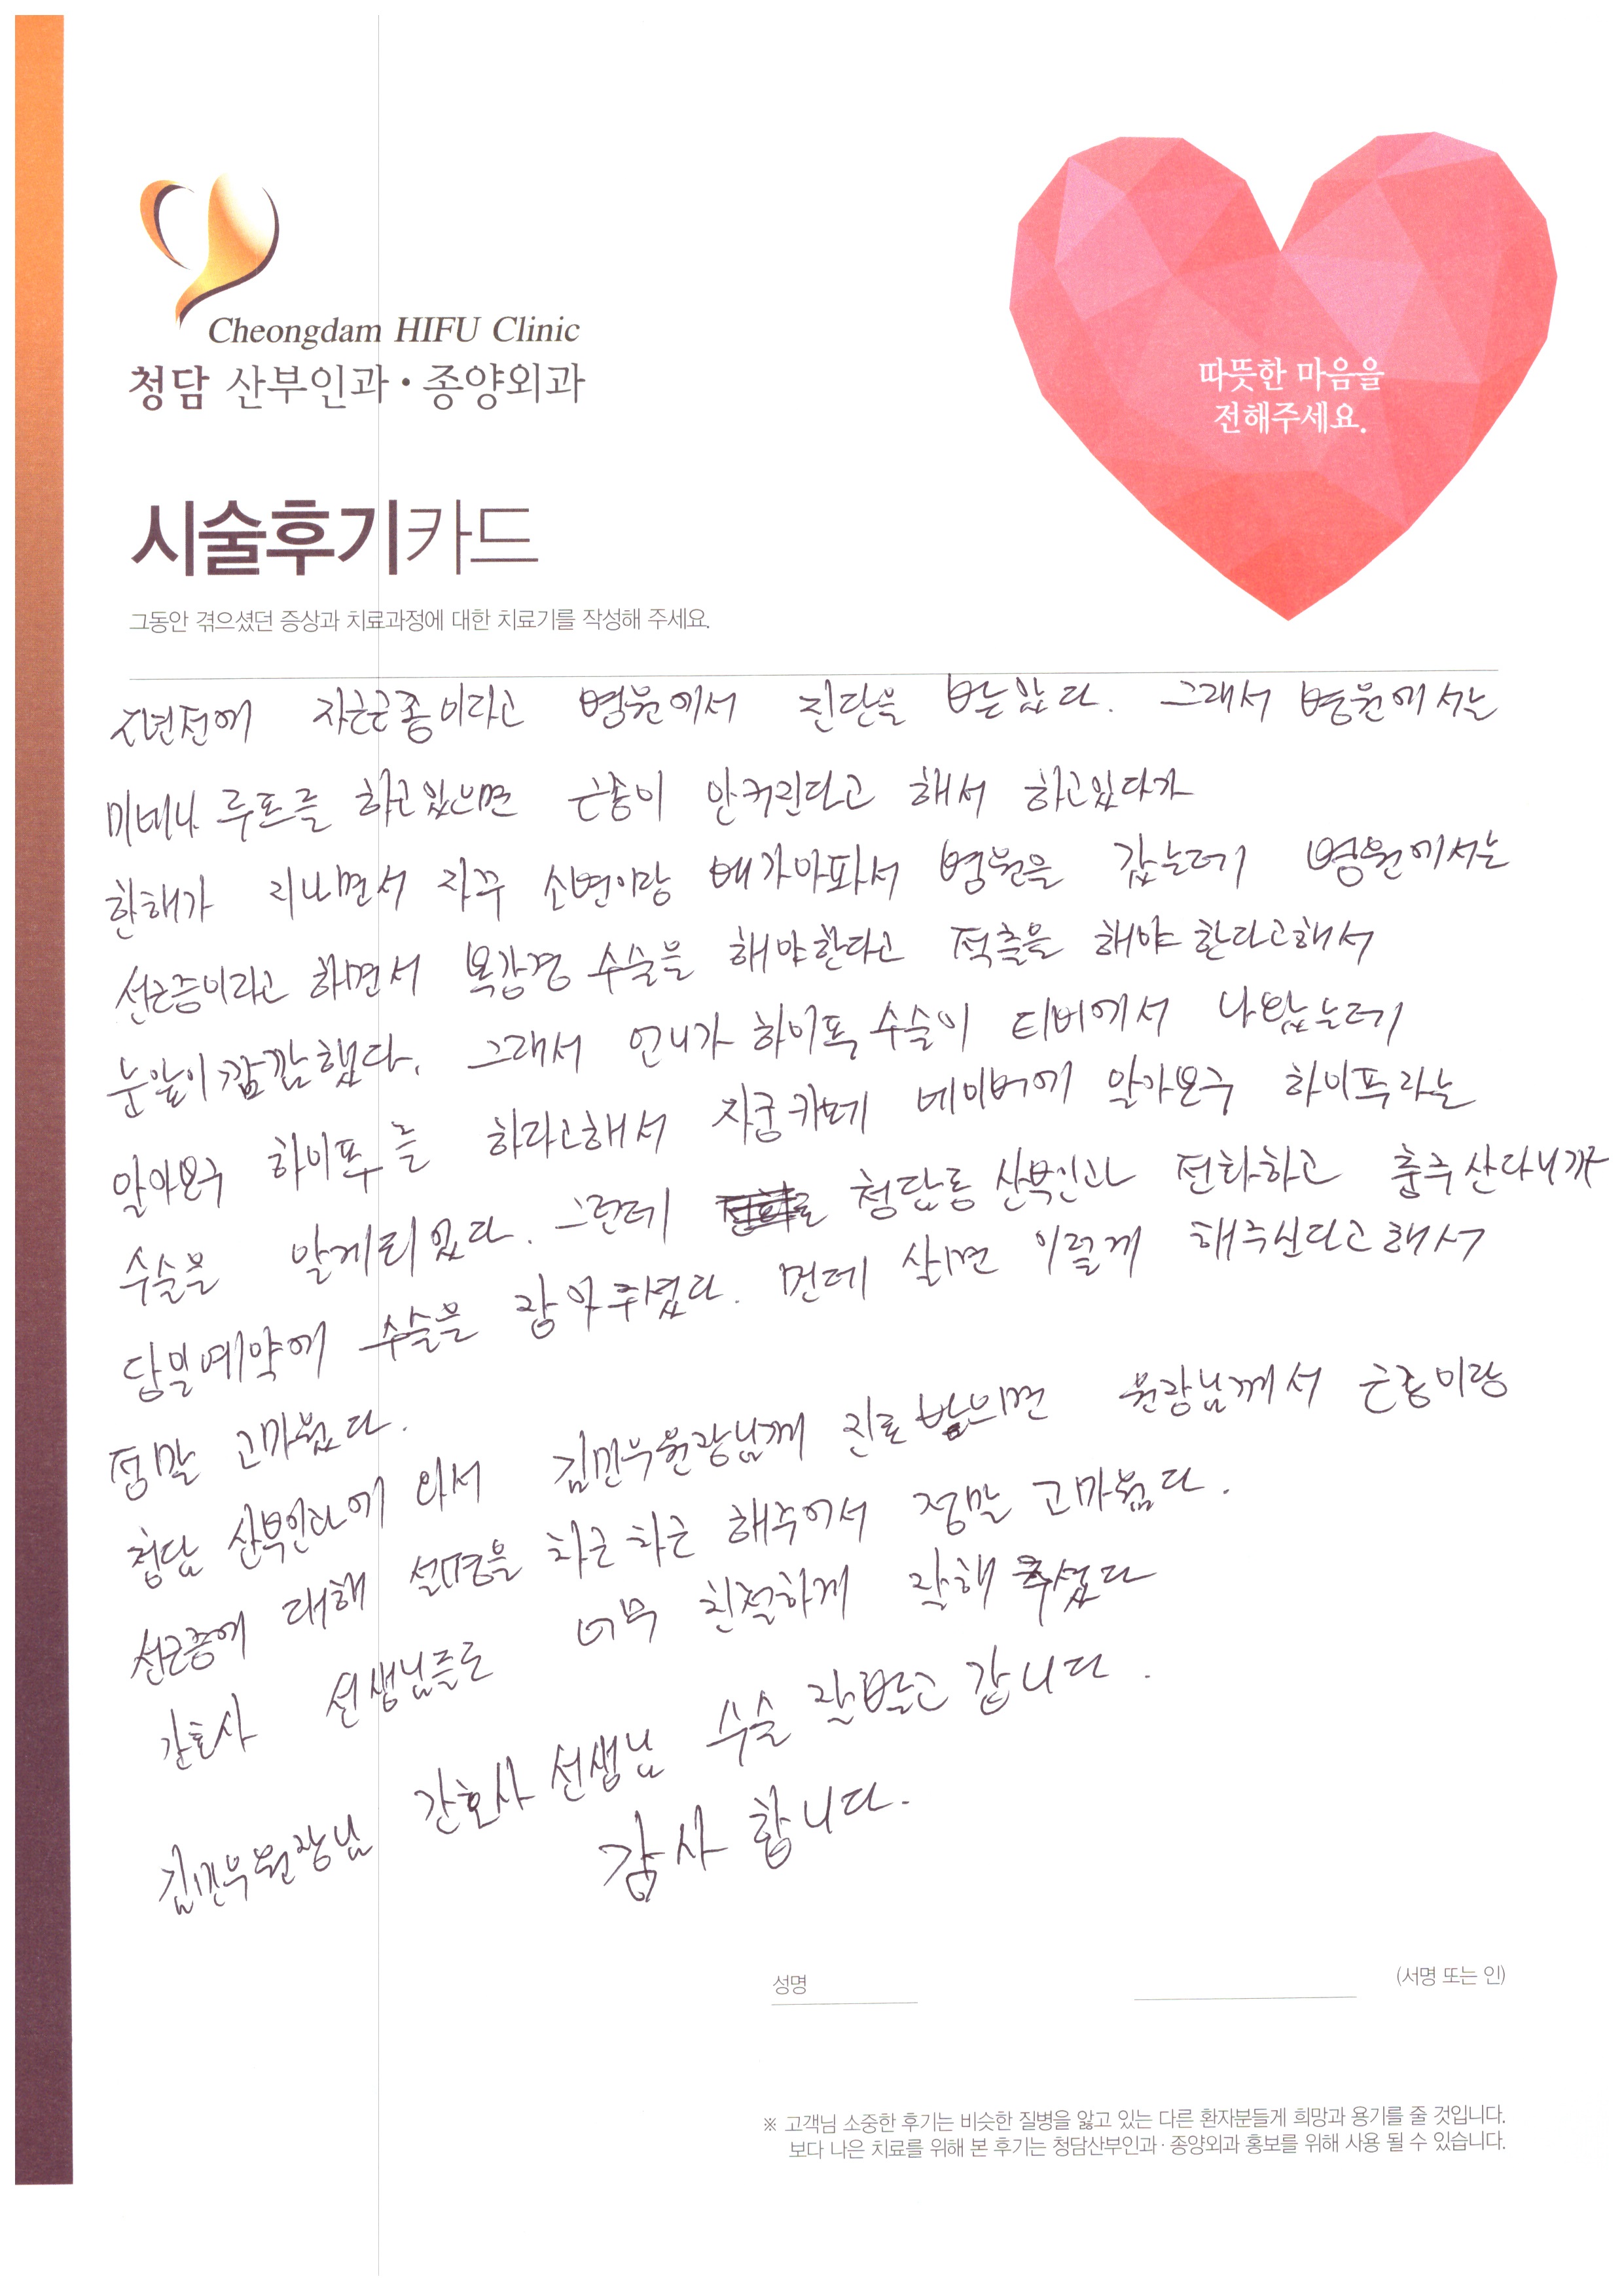 Cheongdam HIFU Clinic
청담 산부인과 · 종양외과
따뜻한 마음을
전해주세요.
시술후기카드
그동안 겪으셨던 증상과 치료과정에 대한 치료기를 작성해 주세요.
년전에 자근근종이라고 병원에서 진단을 받았다. 그래서 병원에서는
미네나 루프를 하고있으면 근종이 안커진다고 해서 하고있다가
한해가 지나면서 자꾸 소변이랑 배가아파서 병원을 갔는데 병원에서는
선근증이라고 하면서 복강경 수술을 해야한다고 적출을 해야 한다고해서
눈앞이 깜깜했다. 그래서 언니가 하이푸 수술이 티비에서 나왔는데
알아보구 하이푸를 하라고해서 자궁카페 네이버에 알아보구 하이푸라는
수술을 알게되었다. 그런데 청담동 산부인과 전화하고 충주산다니까
당일예약에 수술을 잡아주셨다. 먼데 살면 이렇게 해주신다고해서
정말 고마웠다.
청담 산부인과에 와서 김민우원장님께 진료 받으면 원장님께서 근종이랑
선근증에 대해 설명을 차근차근 해주어서 정말 고마웠다.
간호사 선생님들도 너무 친절하게 잘해 주셨다
김민우원장님 간호사 선생님 수술 잘받고 갑니다.
감사 합니다.
성명
(서명 또는 인)
※ 고객님 소중한 후기는 비슷한 질병을 앓고 있는 다른 환자분들게 희망과 용기를 줄 것입니다.
보다 나은 치료를 위해 본 후기는 청담산부인과 · 종양외과 홍보를 위해 사용 될 수 있습니다.